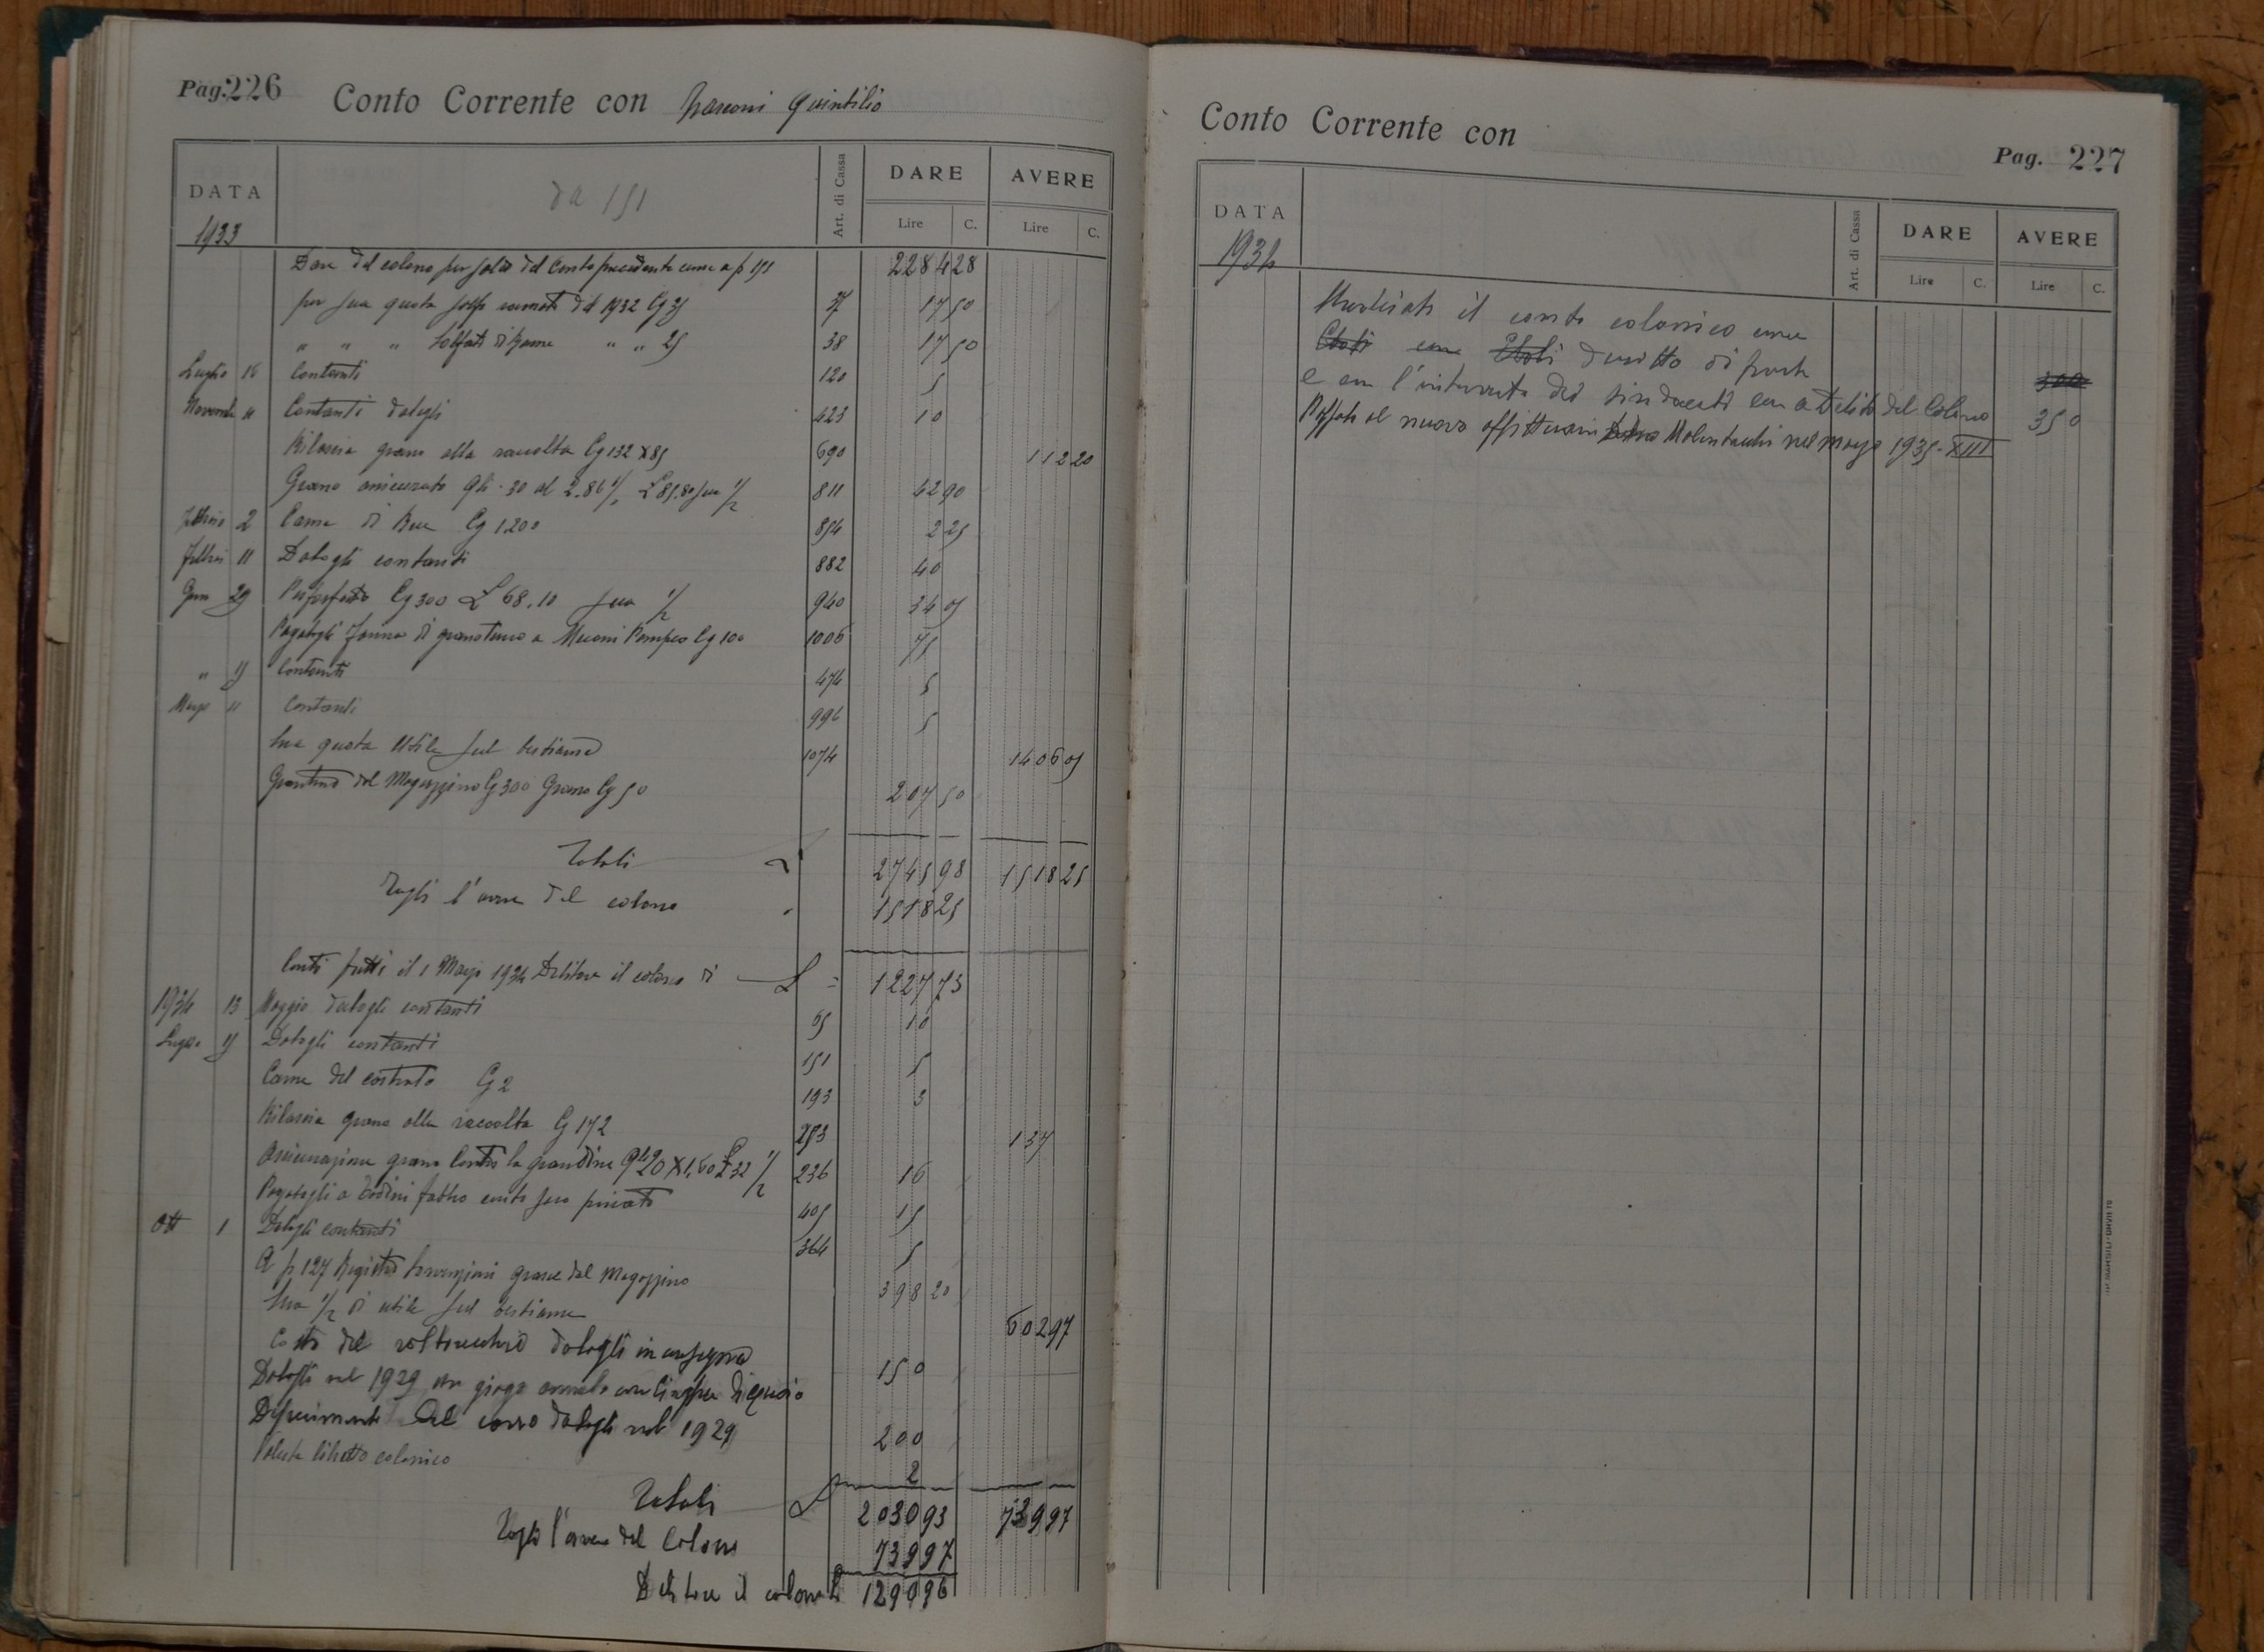 Pag. 226
Conto Corrente con Quintilio
DATA
da 151
Art. di Cassa
DARE
AVERE
Lire C. Lire C.
1933
Dare del colono per saldo del Conto precedente come a p 151 2284 28
per sua quota 1932 Cg 25 37 17 50
" " " Solfato di Rame " " 25 38 17 50
Luglio 16 Contanti 120 5
Novembre 11 Contanti datogli 423 10
Rilascia grano alla raccolta Cg 132 X 85 690 112 20
Grano assicurato Qli 30 al 2.86 % £ 85.80 sua 1/2 811 42 90
2 Carne di Bue Cg 1200 854 2 25
11 Datogli contanti 882 40
Genn 29 Perfosfato Cg 300 £ 68.10 sua 1/2 940 34 05
Pagatogli farina di granoturco a Pompeo Cg 100 1006 75
" 15 Contanti 474 5
Marzo 11 Contanti 996 5
Sua quota Utile sul bestiame 1074 1406 05
Granturco del Magazzino Cg 300 Grano Cg 50 207 50
Totali £ 2745 98 1518 25
Togli l'avere del colono " 1518 25
Conti fatti il 1 Marzo 1934 Debitore il colono di £ = 1227 73
1934 13 Maggio datogli contanti 65 10
15 Datogli contanti 151 5
Carne del castrato Cg 2 193 3
Rilascia grano alla raccolta Cg 172 253 137
Assicurazione grano Contro la grandine Qli 20 X 1,60 £ 32 1/2 236 16
Pagatogli a fabbro conto suo privato 405 15
Ott 1 Datogli contanti 364 5
A p 127 Registro grasce del Magazzino 398 20
Sua 1/2 di utile sul bestiame 602 97
Costo del datogli in consegna 150
Datogli nel 1929 un giogo
del carro datogli nel 1929 200
libretto colonico 2
Totali £ 2030 93 739 97
Togli l'avere del Colono 739 97
Debitore il colono di £ 1290 96
Conto Corrente con
Pag. 227
DATA
Art. di Cassa
DARE
AVERE
Lire C. Lire C.
1934
il conto colonico come
diritto di parte 300
e con l'intervento dei sindacati con a Debito del Colono 350
al nuovo nel marzo 1935-XIII